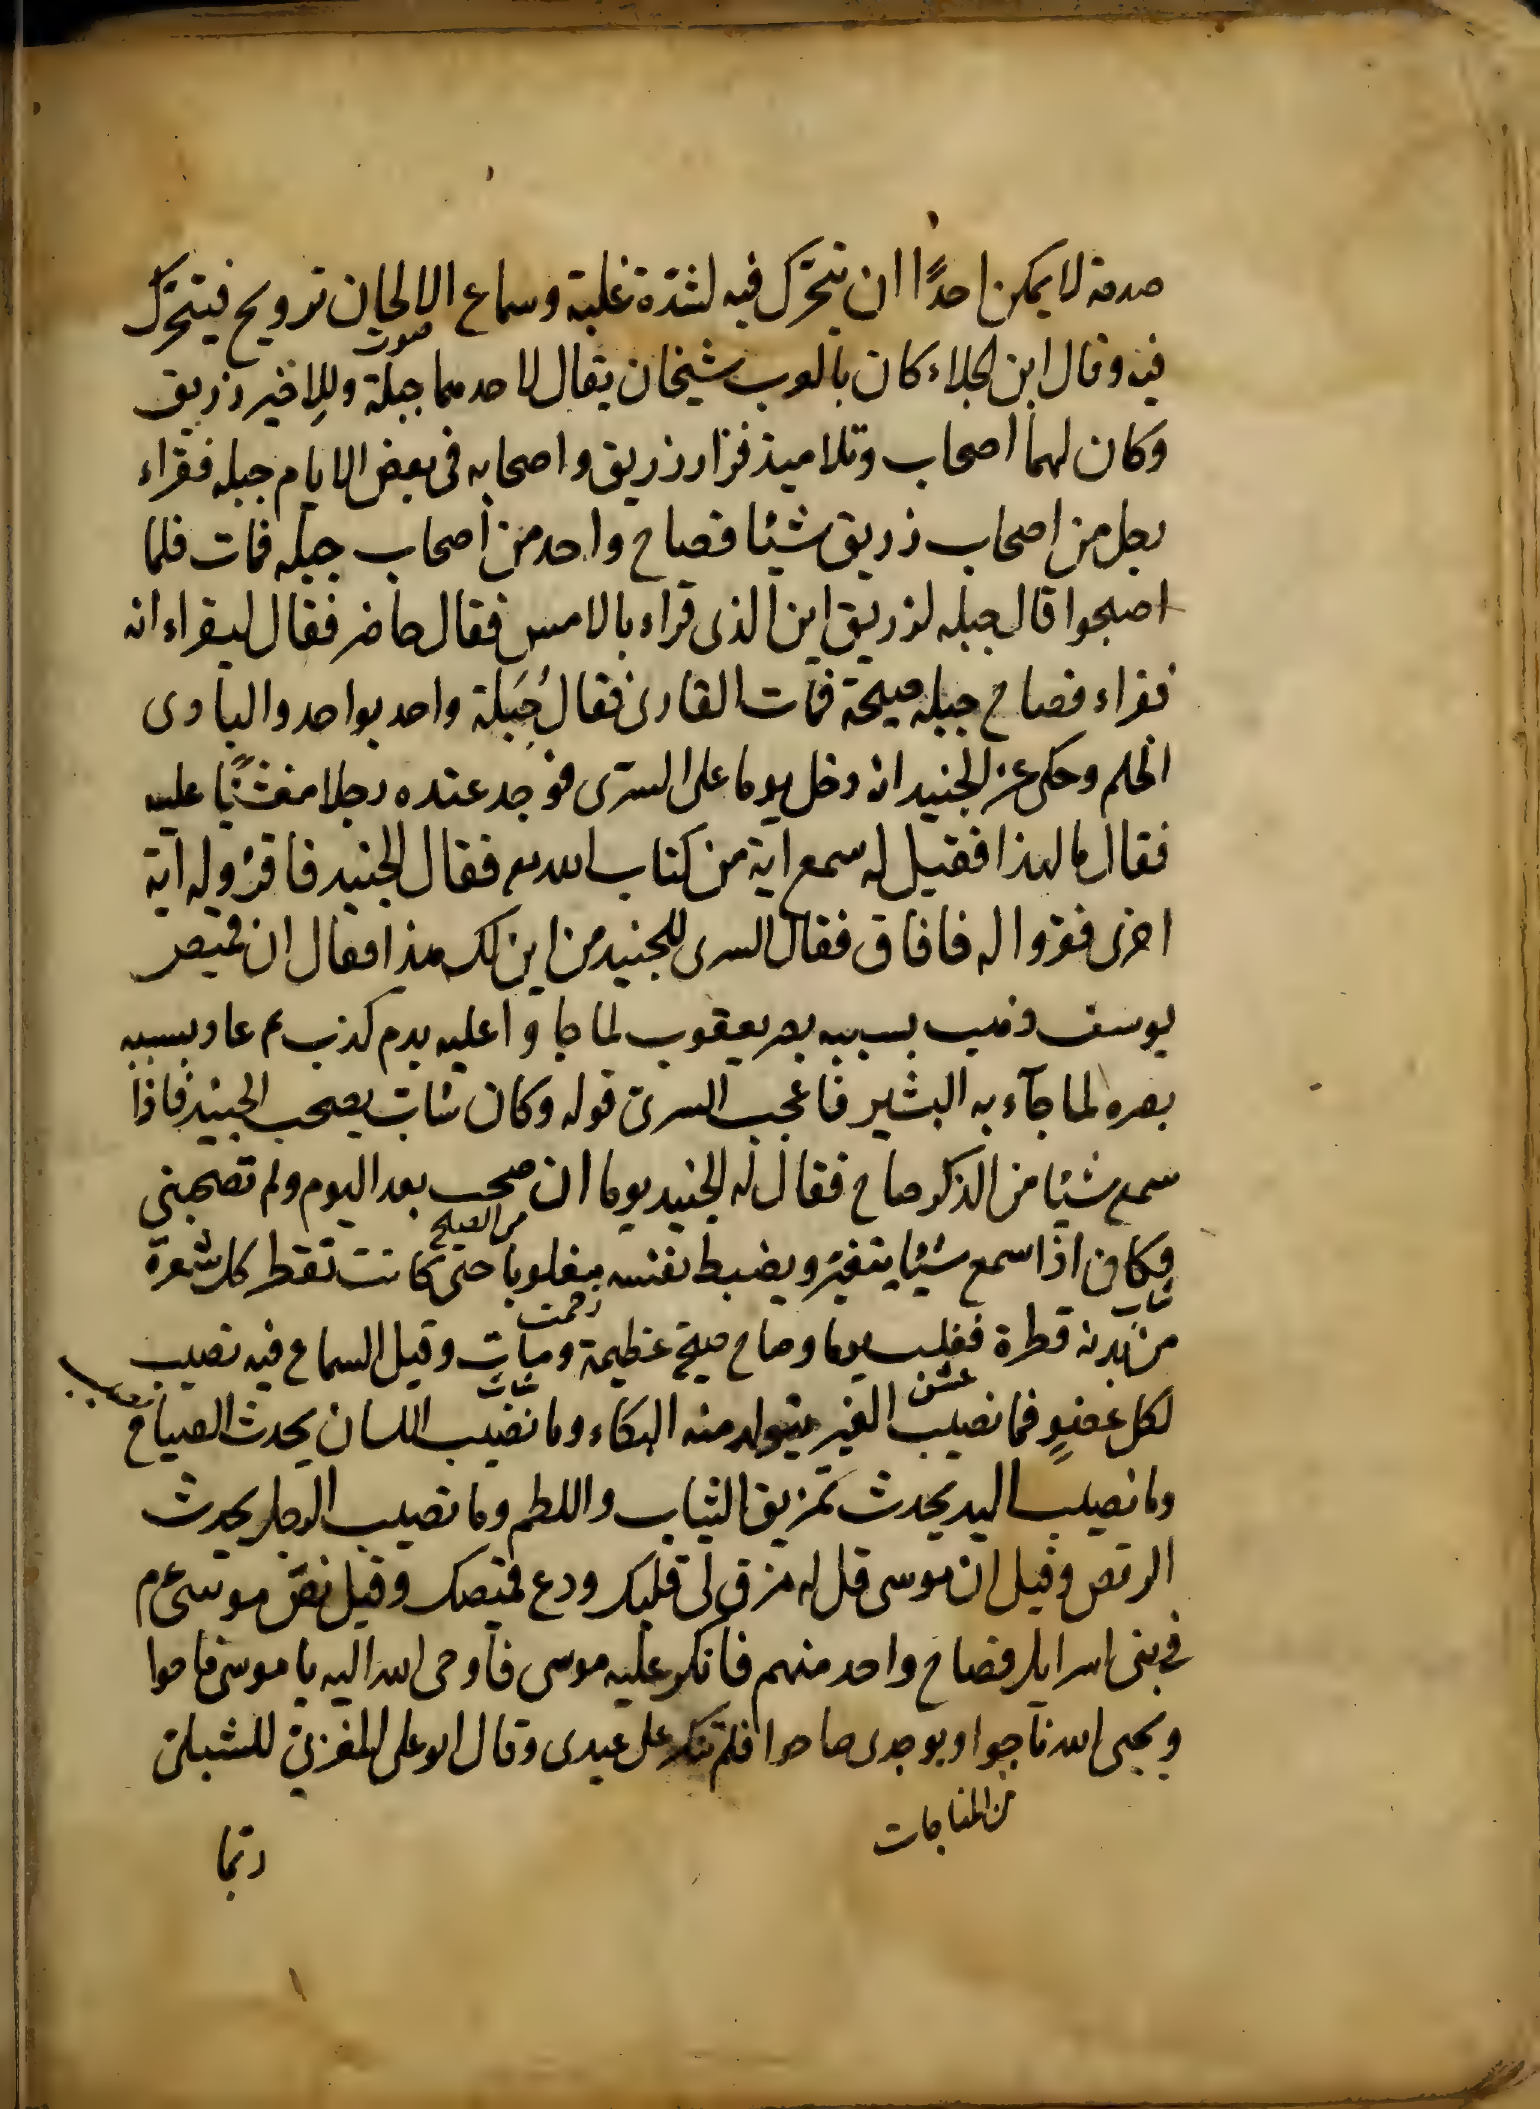 صدمة لا يمكن احدًا ان يتحرّك فيه لشدّة غلبة وسماع الالحان ترويح فيتحرّك
صوت
فيه وقال ابن الجلاء كان بالمغرب شيخان يقال لاحدهما جبلة وللاخير زريق
وكان لهما اصحاب وتلاميذ فزار زريق واصحابه فى بعض الايام جبله فقراء
رجل من اصحاب زريق شيئا فصاح واحد من اصحاب جبله فمات فلما
اصبحوا قال جبله لزريق اين الذى قراء بالامس فقال حاضر فقال ليقراء انه
فقراء فصاح جبله صيحة فمات القارئ فقال جَبَلة واحد بواحد والبادى
اظلم وحكى عن الجنيد انه دخل يوما على السرّى فوجد عنده رجلا مغشيًا عليه
فقال ما لهذا فقيل له سمع اية من كتاب الله تع فقال الجنيد فاقرؤ له آية
اخرى فقروا له فافاق فقال السرى للجنيد من اين لك هذا فقال ان قميص
يوسف ذهب بسببه بصر يعقوب لما جاؤا عليه بدم كذب ثم عاد بسببه
بصره لما جآء به البشير فاعجب السرىّ قوله وكان شابّ يصحب الجنيد فاذا
سمع شيئا من الذكر صاح فقال له الجنيد يوما ان صحب بعد اليوم ولم تصحبنى
من الصيح
فكان اذا سمع شيئا يتغيّر ويضبط نفسه مغلوبا حتى كانت تقطر كل شعرة
شاب
رحمت
من بدنه قطرة فغلب يوما وصاح صيحة عظيمة ومات وقيل السماع فيه نصيب
لكل عضوٍ فما نصيب الغير يتولد منه البكاء وما نصيب اللسان يحدث الصياح
وما نصيب اليد يحدث تمزيق الثياب واللطم وما نصيب الرجل يحدث
الرقص وقيل ان موسى قل له مزق لى قلبك ودع قميصك وقيل نصّ موسى عم
فى بنى اسرايل فصاح واحد منهم فانكر عليه موسى فاوحى الله اليه يا موسى فاحوا
وبحبى الله ناجوا وبوجدى صاحوا فلم تنكر على عبدى وقال ابو على المغربى للشبلىّ
من المناجات
ربّما